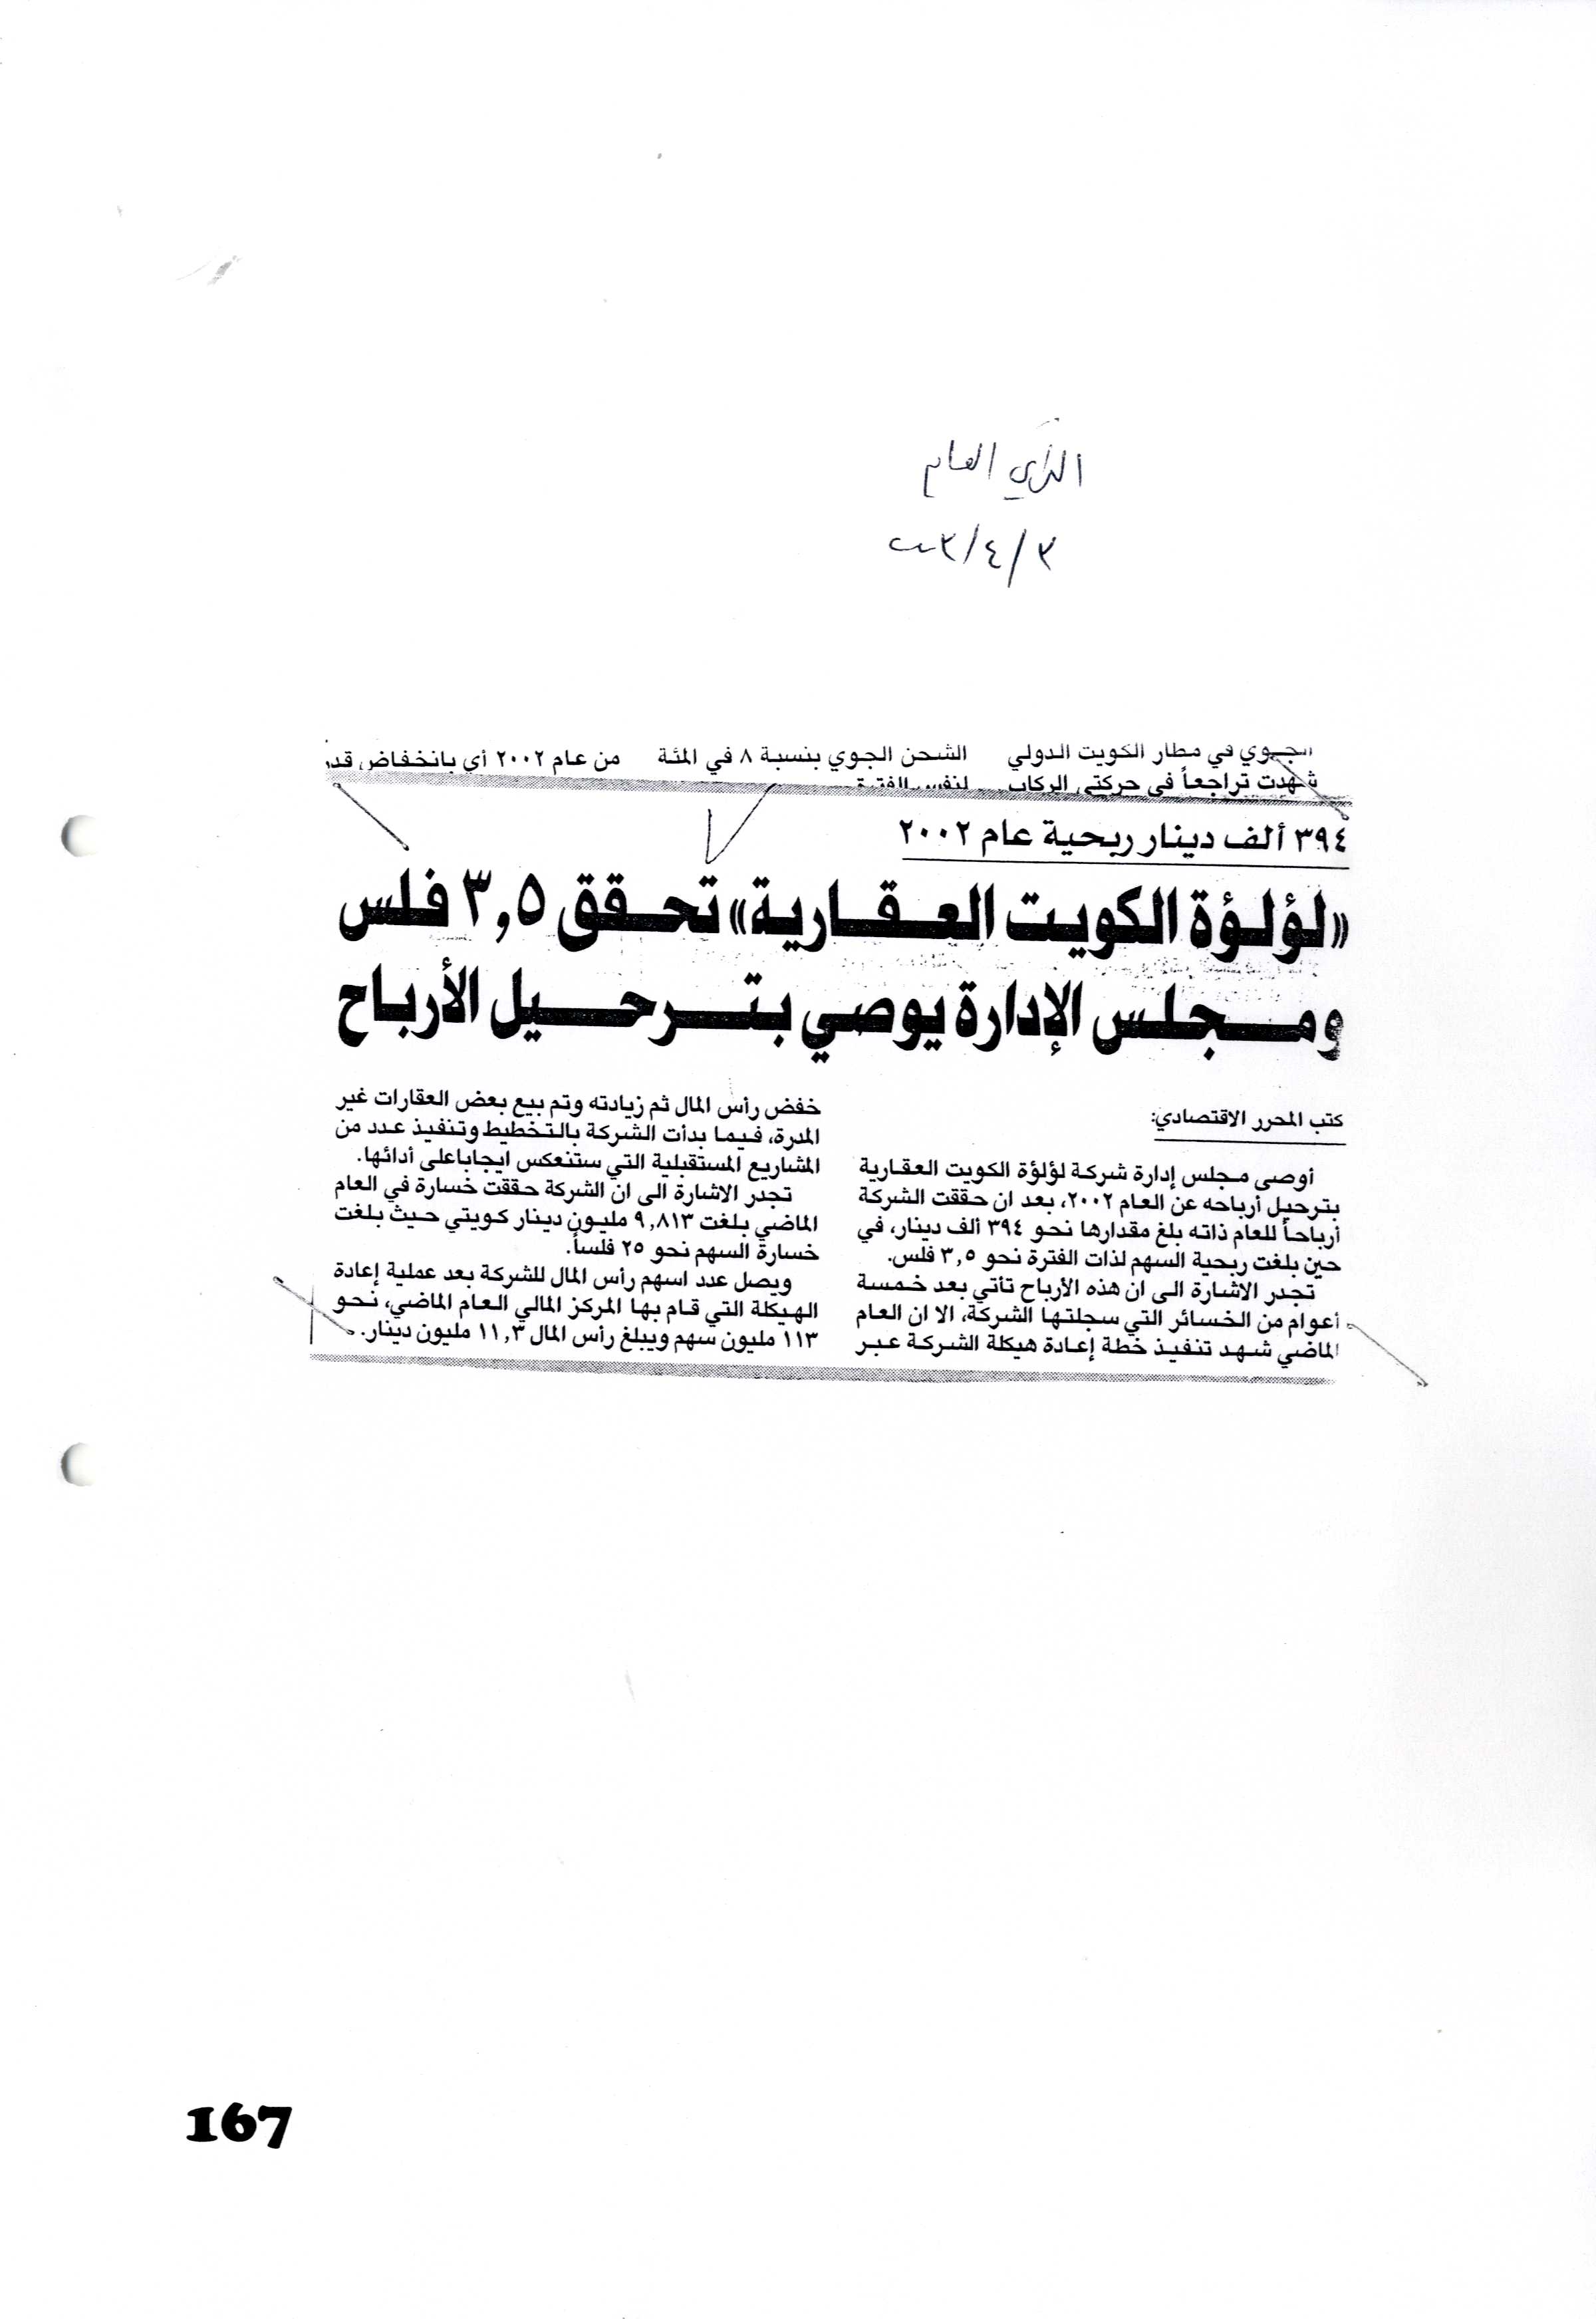 الرأي العام
٢٠٠٣/٤/٣
الجوي في مطار الكويت الدولي
شهدت تراجعاً في حركتي الركاب
الشحن الجوي بنسبة ٨ في المئة
لنفس الفترة
من عام ٢٠٠٢ أي بانخفاض قدر
٣٩٤ ألف دينار ربحية عام ٢٠٠٢
«لؤلؤة الكويت العقارية» تحقق ٣,٥ فلس
ومجلس الإدارة يوصي بترحيل الأرباح
كتب المحرر الاقتصادي:
أوصى مجلس إدارة شركة لؤلؤة الكويت العقارية
بترحيل أرباحه عن العام ٢٠٠٢، بعد ان حققت الشركة
أرباحاً للعام ذاته بلغ مقدارها نحو ٣٩٤ ألف دينار، في
حين بلغت ربحية السهم لذات الفترة نحو ٣,٥ فلس.
تجدر الاشارة الى ان هذه الأرباح تأتي بعد خمسة
أعوام من الخسائر التي سجلتها الشركة، الا ان العام
الماضي شهد تنفيذ خطة إعادة هيكلة الشركة عبر
خفض رأس المال ثم زيادته وتم بيع بعض العقارات غير
المدرة، فيما بدأت الشركة بالتخطيط وتنفيذ عدد من
المشاريع المستقبلية التي ستنعكس ايجاباعلى أدائها.
تجدر الاشارة الى ان الشركة حققت خسارة في العام
الماضي بلغت ٩,٨١٣ مليون دينار كويتي حيث بلغت
خسارة السهم نحو ٢٥ فلساً.
ويصل عدد اسهم رأس المال للشركة بعد عملية إعادة
الهيكلة التي قام بها المركز المالي العام الماضي، نحو
١١٣ مليون سهم ويبلغ رأس المال ١١,٣ مليون دينار.
167